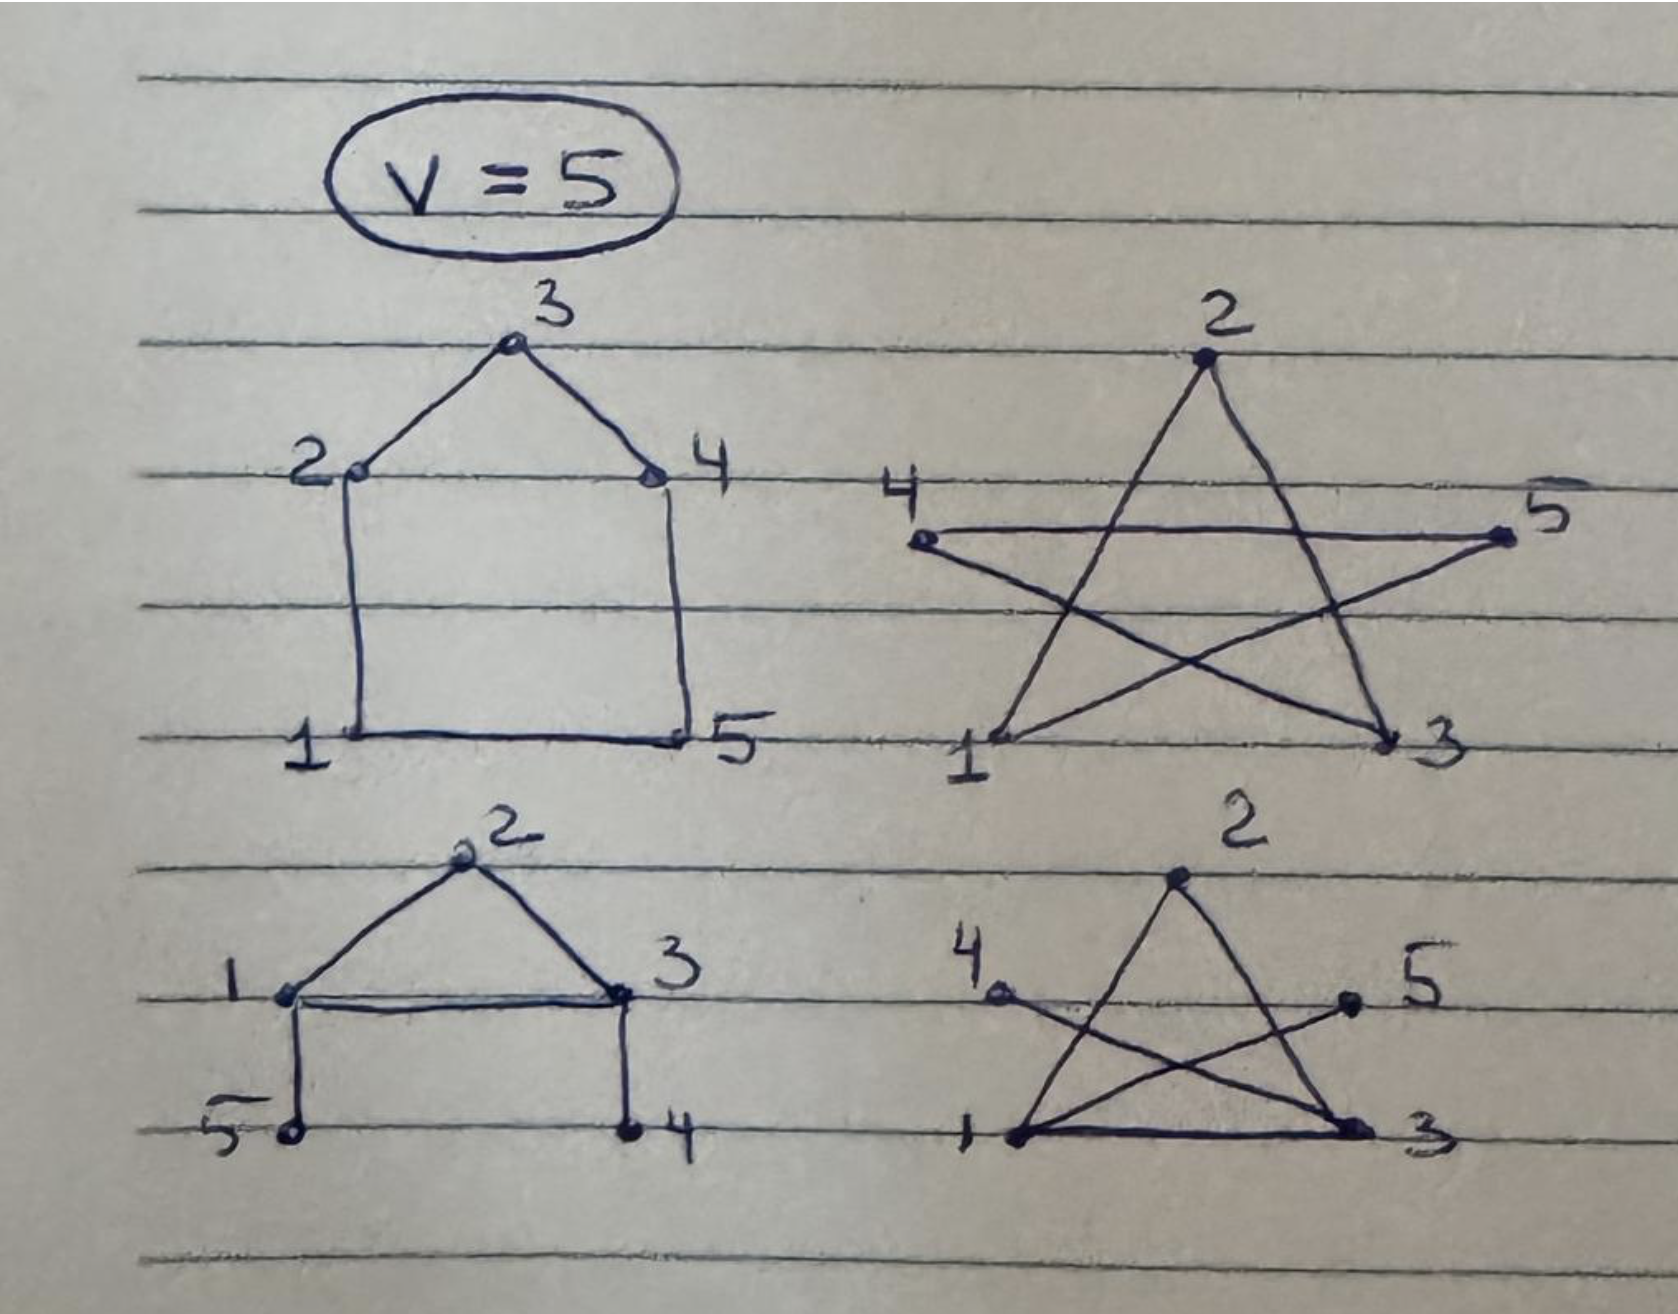 V = 5
3
2 4
1 5
2
4 5
1 3
2
1 3
5 4
2
4 5
1 3